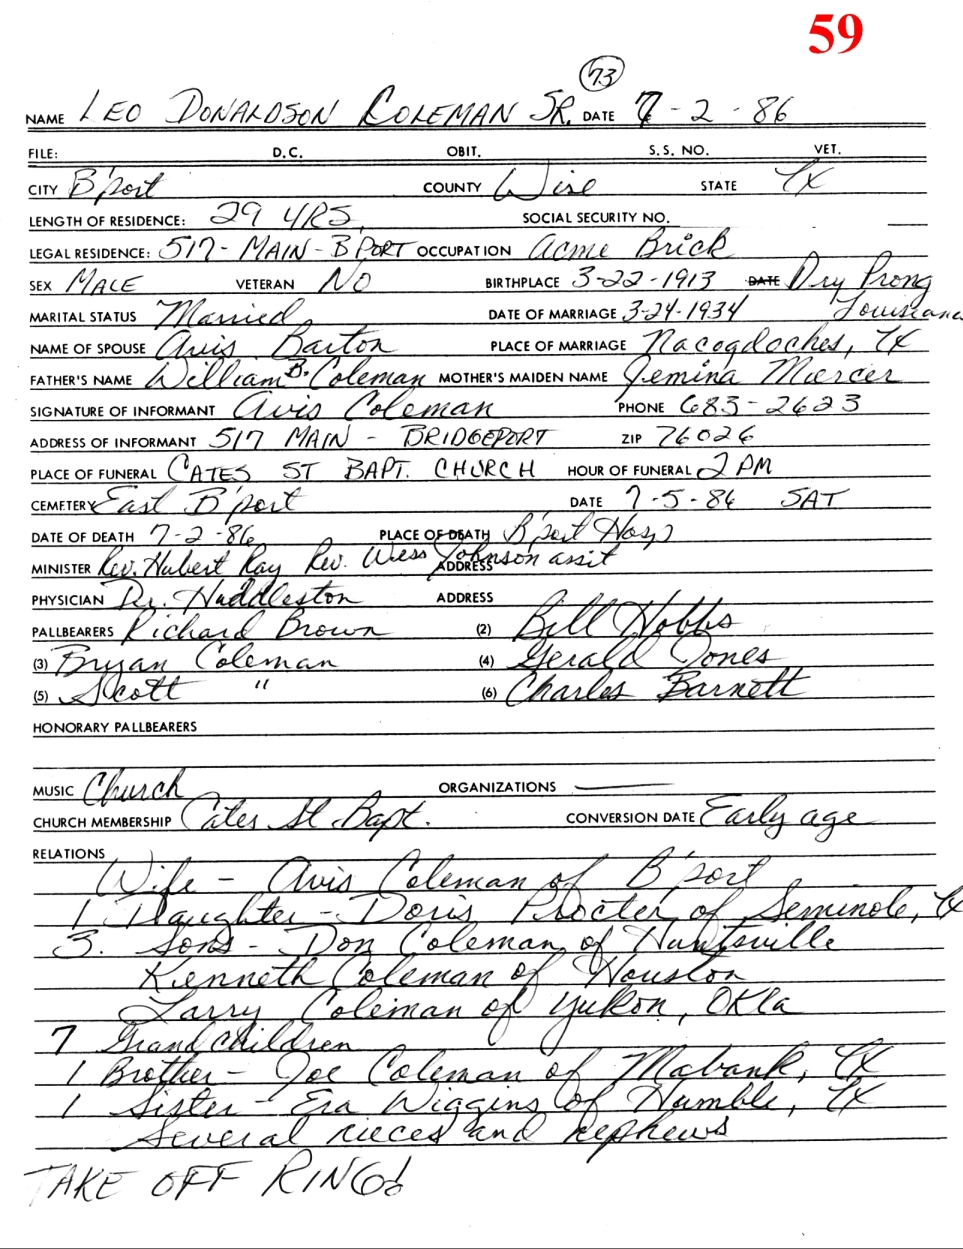 59
73
NAME LEO DONALDSON COLEMAN SR. DATE 7-2-86
FILE: D.C. OBIT. S.S. NO. VET.
CITY B'port COUNTY Wise STATE TX
LENGTH OF RESIDENCE: 29 YRS. SOCIAL SECURITY NO.
LEGAL RESIDENCE: 517 - MAIN - B'PORT OCCUPATION Acme Brick
SEX MALE VETERAN NO BIRTHPLACE 3-22-1913 DATE Dry Prong
MARITAL STATUS Married DATE OF MARRIAGE 3-24-1934 Louisiana
NAME OF SPOUSE Avis Barton PLACE OF MARRIAGE Nacogdoches, TX
FATHER'S NAME William B. Coleman MOTHER'S MAIDEN NAME Jemina Mercer
SIGNATURE OF INFORMANT Avis Coleman PHONE 683-2623
ADDRESS OF INFORMANT 517 MAIN - BRIDGEPORT ZIP 76026
PLACE OF FUNERAL CATES ST BAPT. CHURCH HOUR OF FUNERAL 2 PM
CEMETERY East B'port DATE 7-5-86 SAT
DATE OF DEATH 7-2-86 PLACE OF DEATH B'port Hosp
MINISTER Rev. Hubert Ray Rev. Wess Johnson assit ADDRESS
PHYSICIAN Dr. Huddleston ADDRESS
PALLBEARERS Richard Brown (2) Bill Hobbs
(3) Bryan Coleman (4) Gerald Jones
(5) Scott " (6) Charles Barnett
HONORARY PALLBEARERS
MUSIC Church ORGANIZATIONS —
CHURCH MEMBERSHIP Cates St Bapt. CONVERSION DATE Early age
RELATIONS
Wife - Avis Coleman of B'port
1 Daughter - Doris Procter of Seminole, TX
3. Sons - Don Coleman of Huntsville
Kenneth Coleman of Houston
Larry Coleman of Yukon, OKla
7 Grandchildren
1 Brother - Joe Coleman of Mabank, TX
1 Sister - Era Wiggins of Humble, TX
Several nieces and nephews
TAKE OFF RING!